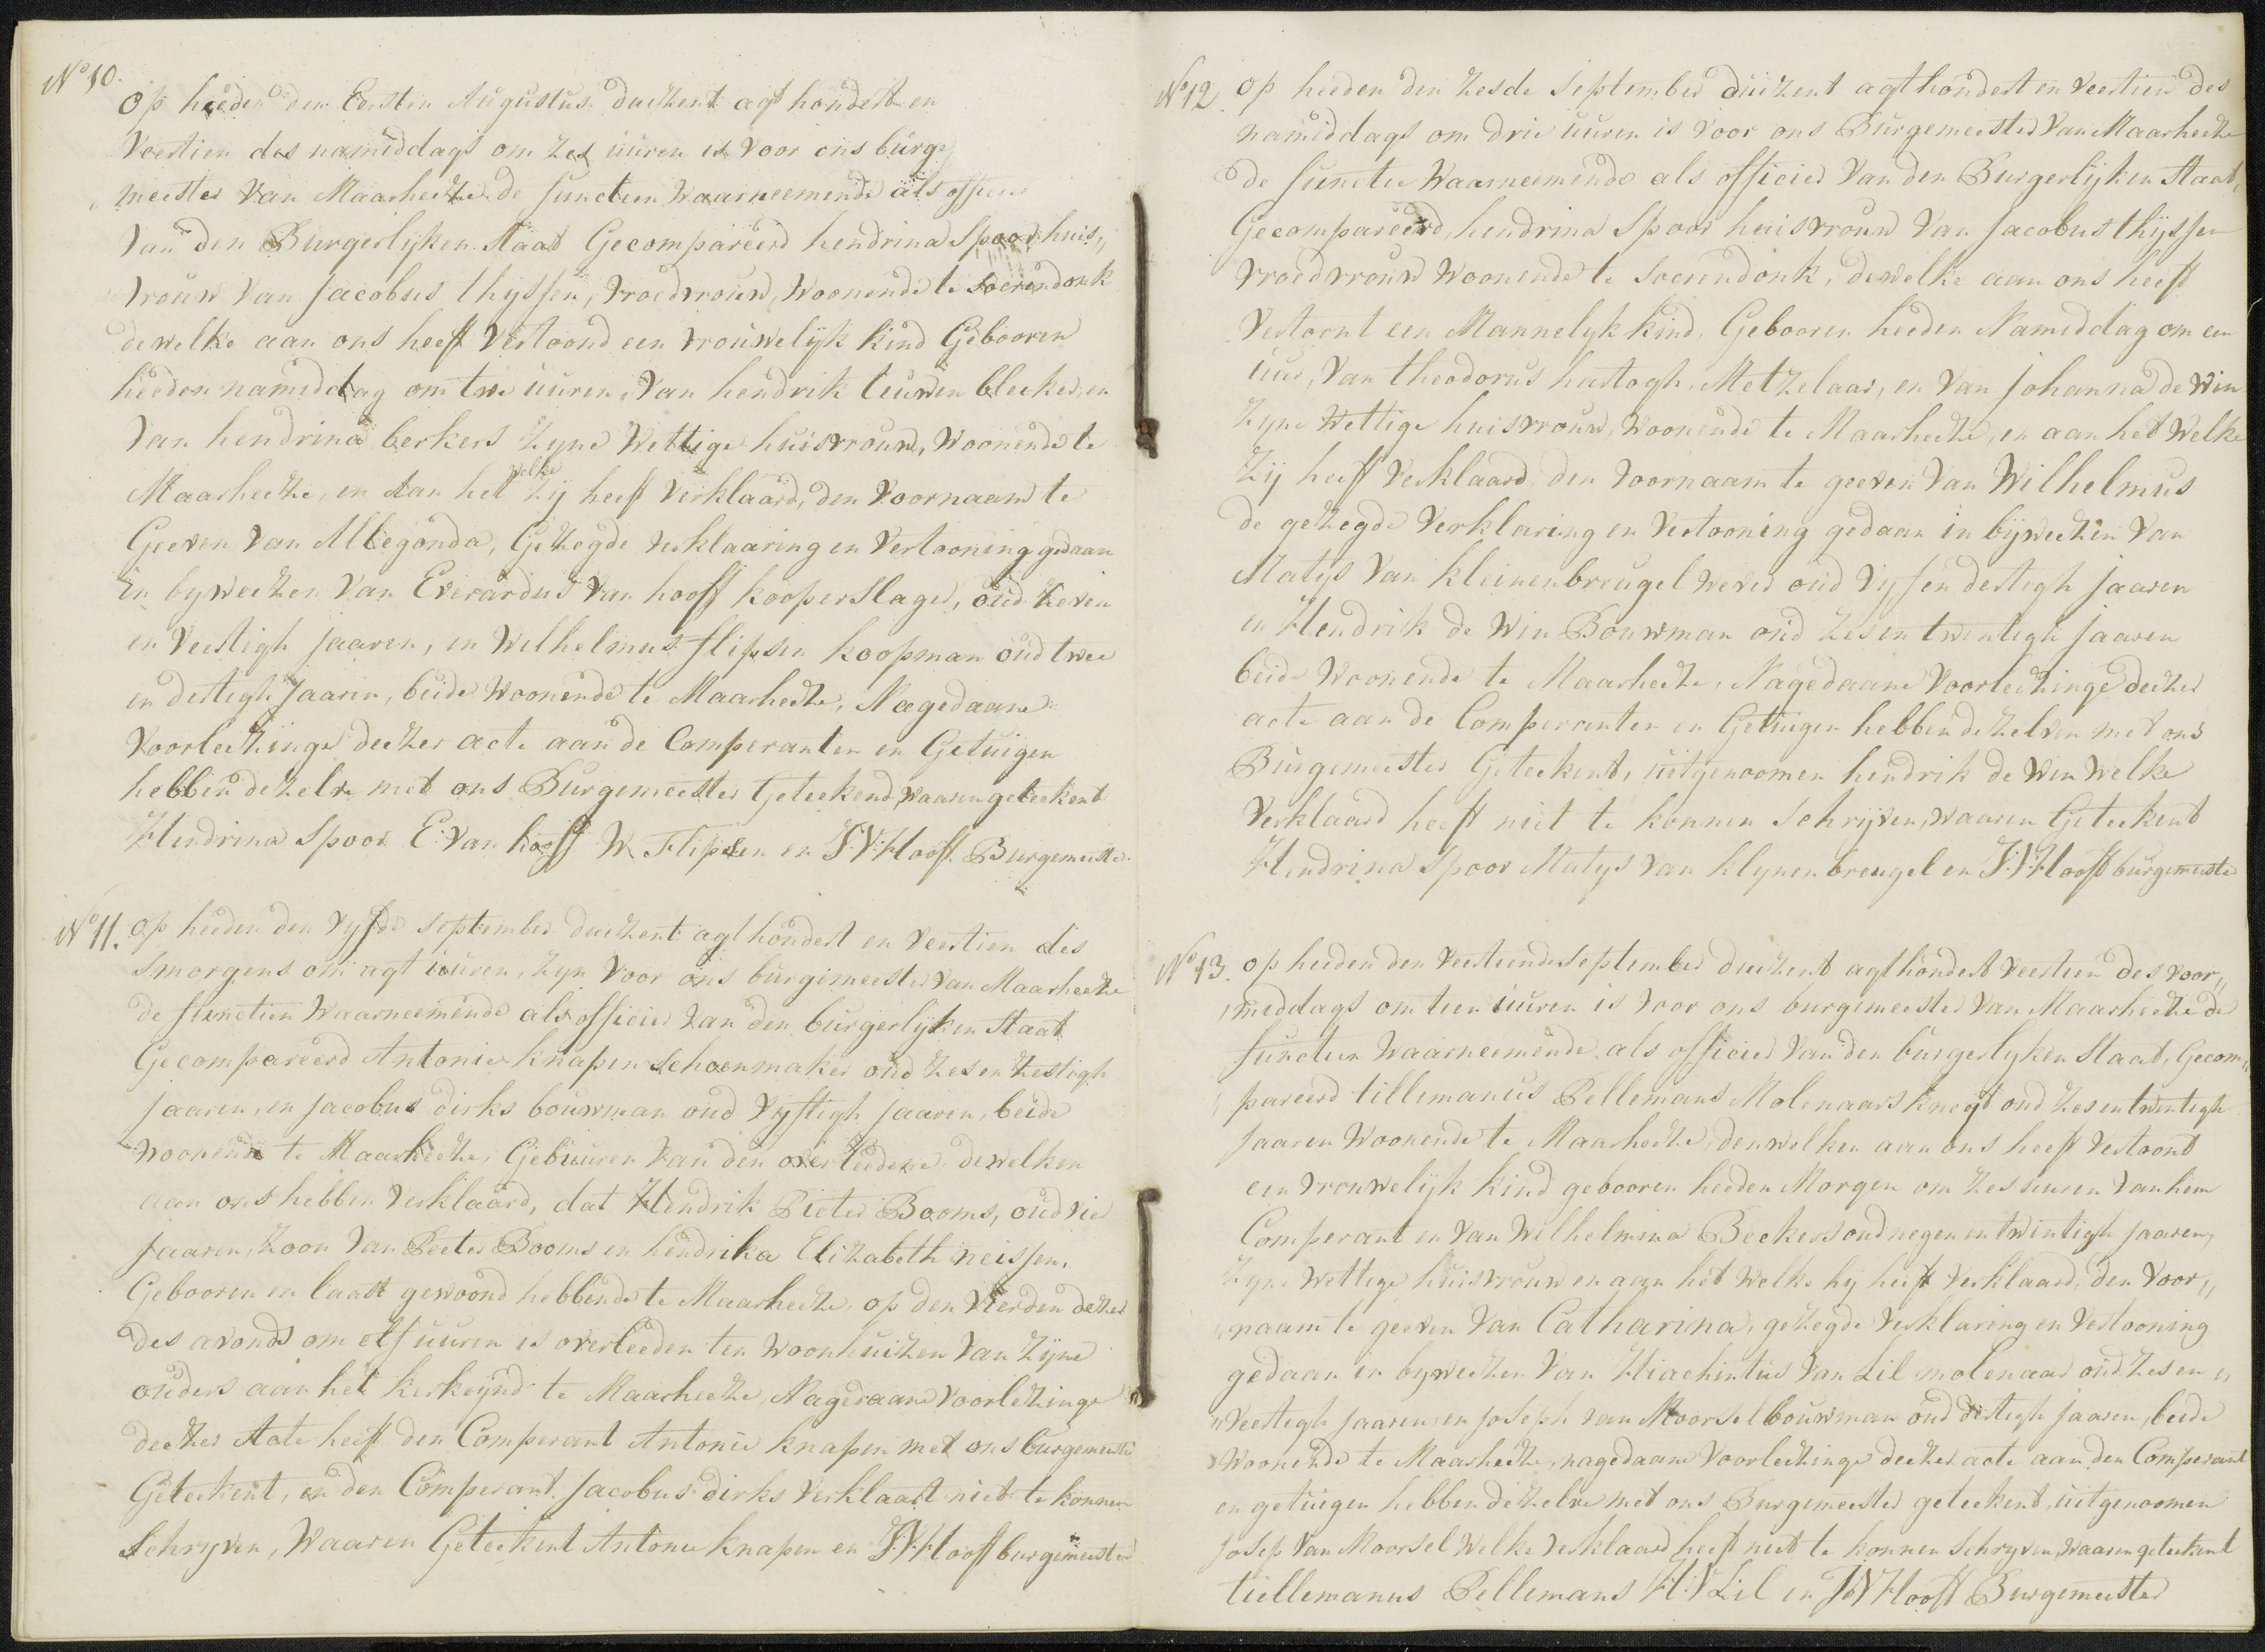 No 10.
Op heeden den Eersten Augustus duizent agt hondert en
Veertien des namiddags om zes uuren is voor ons burge,,
,,meester Van Maarheeze de functien waarneemende als officier
Van den Burgerlyken Staat Gecompareerd hendrina Spoor huis,,
Vrouw Van Jacobus thyssen, vroedvrouw, Woonende te Soerendonk
dewelke aan ons heeft Vertoond een vrouwelijk kind Gebooren
heeden namiddag om twe uuren, Van hendrik Cuuden bleeker, en
Van hendrina berkers Zyne Wettige huisvrouw, Woonende te
Maarheeze, en Aan het welke Zij heeft Verklaard, den Voornaam te
Geeven Van Allegonda, Gezegde verklaaring en Vertooning gedaan
in byweezen Van Everardus Van hooff kooperslager, oud Zeven
en Veertigh jaaren, en Wilhelmus flipsen koopman oud twee
en dertigh Jaaren, beide woonende te Maarheeze, Nagedaane
Voorleezinge deezer acte aan de Comperanten en Getuigen
hebben dezelve met ons Burgemeester Geteekend, waaren geteekent
Hendrina Spoor E: Van hooff W. Flipsen en J:V:Hooff Burgemeester
No 11. op heeden den vyfde september duizent agt hondert en veertien des
smorgens om agt uuren, zyn Voor ons burgemeester Van Maarheeze
de functien Waarneemende als officier Van den burgerlyken Staat
Gecompareerd Antonie knapen Schoenmaker oud zes en zestigh
jaaren, en jacobus dirks bouwman oud Vyftigh jaaren, beide
woonende te Maarheeze, Gebuuren Van den overleedene, dewelken
aan ons hebben Verklaard, dat Hendrik Pieter Booms, oud vier
Jaaren, Zoon Van Peeter Booms en hendrika Elizabeth neissen,
Gebooren en laatst gewoond hebbende te Maarheeze, op den Vierden dezer
des avonds om elf uuren is overleeden ten woonhuizen Van Zijne
ouders aan het kerkeijnd te Maarheeze, Nagedaane Voorlezinge
deezer Acte heeft den Comperant Antonie knapen met ons burgemeester
Geteekent, en den Comperant Jacobus dirks Verklaart niet te konnen
Schryven, Waaren Geteekent Antonie knapen en J:V:Hooff burgemeester
No 12 op heeden den zesde September duizent agthondert en veertien des
namiddags om drie uuren is voor ons Burgemeester Van Maarheeze
de functie Waarneemende als officier Van den Burgerlijken Staat,
Gecompareerd, hendrina Spoor huisvrouw Van Jacobus thijssen
vroedvrouw woonende te Soerendonk, dewelke aan ons heeft
Vertoont een Mannelijk kind, Gebooren heeden Namiddag om een
uur, Van theodorus hartogh, Metzelaar, en Van Johanna de Win
Zyne Wettige huisvrouw, woonende te Maarheeze, en aan het Welke
Zij heeft Verklaard den Voornaam te geeven Van Wilhelmus
de gezegde Verklaring en Vertooning gedaan in bijweezen Van
Matys Van kleinenbreugel wever oud Vijf en dertigh jaaren
en Hendrik de Win Bouwman oud zes en twintigh jaaren
beide Woonende te Maarheeze, Nagedaane Voorleezinge deezer
acte aan de Comperanten en Getuigen hebben dezelven met ons
Burgemeester Geteekent, uitgenoomen hendrik de Win Welke
Verklaard heeft niet te konnen Schrijven, waaren Geteekent
Hendrina Spoor Matys Van Klynenbreugel en J:V:Hooff burgemeester
No 13. op heeden den Veertiende September duizent agthondert Veertien des voor,,
,,middags om tien uuren is voor ons burgemeester Van Maarheeze de
functien Waarneemende als officier Van den burgerlyken Staat, Gecom,,
,,pareerd tillemanus Pellemans Molenaars knegt oud zes en twintigh
Jaaren Woonende te Maarheeze, denwelken aan ons heeft Vertoont
een Vrouwelijk kind gebooren heeden Morgen om zes uuren Van hem
Comperant en Van Wilhelmina Beekers oud negen en twintigh jaaren,
Zyne Wettige huisvrouw en aan het Welke hij heeft Verklaard, den Voor,,
,,naam te geeven Van Catharina, gezegde Verklaring en Vertooning
gedaan in bijweezen Van Hiachintus Van Lil molenaar oud zes en,,
,,Veertigh jaaren, en joseph van Moorsel bouwman oud dertigh jaaren, beide
Woonende te Maarheeze, nagedaane Voorleezinge deezer acte aan den Comperant
en getuigen hebben dezelve met ons Burgemeester geteekent, uitgenoomen
Josep Van Moorsel Welke Verklaard heeft niet te konnen Schryven, waaren geteekent
tiellemanus Pellemans H:V Lil en J:V Hooff Burgemeester